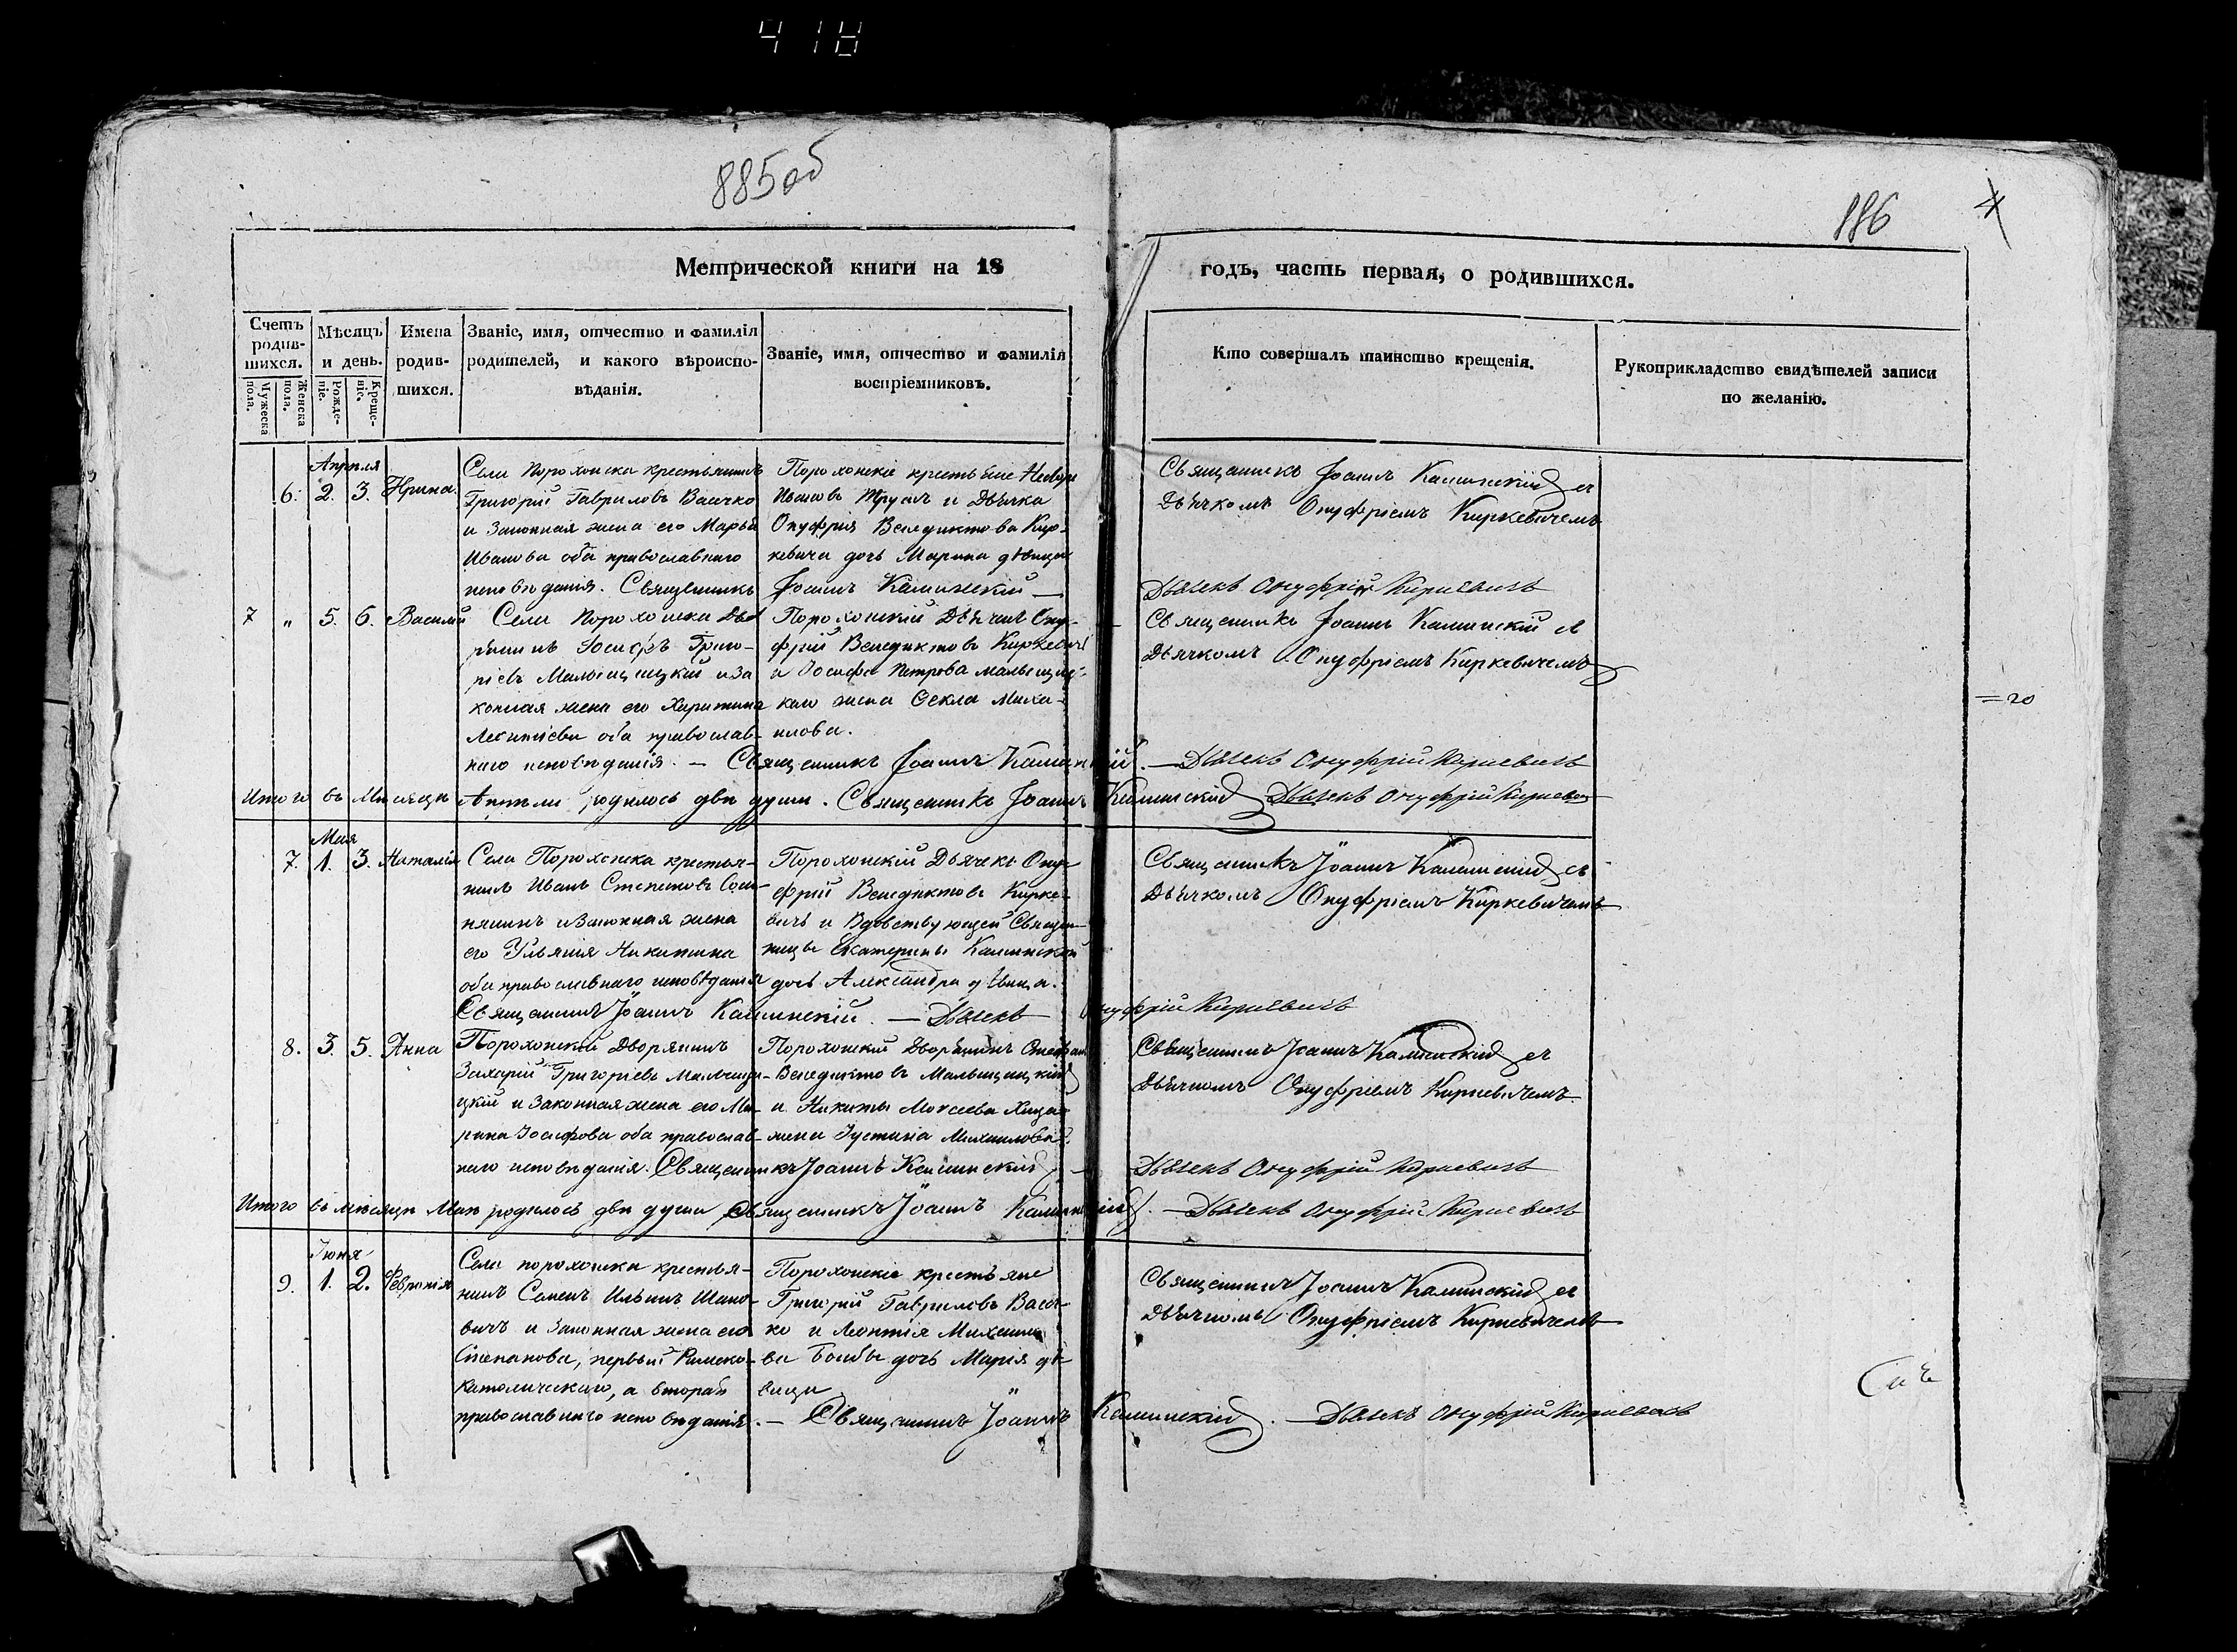 418
885об
886
Метрической книги на 18
годъ, часть первая, о родившихся.
Счетъ родив-шихся.
Мужеска пола.
Женска пола.
Мѣсяцъ и день.
Рожде-ніе.
Креще-ніе.
Имена родив-шихся.
Званіе, имя, отчество и фамилія родителей, и какого вѣроиспо-вѣданія.
Званіе, имя, отчество и фамилія воспріемниковъ.
Кто совершалъ таинство крещенія.
Рукоприкладство свидѣтелей записи по желанію.
Апрѣля
6. 2. 3. Ирина
Села Порохонска крестьянинъ
Григорій Гавриловъ Васечко
и Законная жена его Марья
Иванова оба православнаго
исповѣданія. Священникъ Іоаннъ Калинскій —
Порохонскіе крестьяне
Ивановъ и Дьячка
Онуфрія Венедиктова Кир-
кевича дочь Марина дѣвица
Священникъ Іоаннъ Калинскій съ
Дьячкомъ Онуфріемъ Киркевичемъ
Дьячекъ Онуфрій Киркевичъ
7 " 5. 6. Василій
Села Порохонска Дво-
рянинъ Іосифъ Григо-
ріевъ Мальщицкій и За
конная жена его Харитина
оба православ-
наго исповѣданія. — Священникъ Іоаннъ Калинскій. — Дьячекъ Онуфрій Киркевичъ
Порохонскій Дьячекъ Ону-
фрій Венедиктовъ Киркевичъ
и Іосифа Петрова Мальщиц-
каго жена Ѳекла Миха-
илова.
Священникъ Іоаннъ Калинскій съ
Дьячкомъ Онуфріемъ Киркевичемъ
=20
Итого въ Мѣсяцѣ Апрѣли родилось двѣ души. Священникъ Іоаннъ Калинскій Дьячекъ Онуфрій Киркевичъ
Мая
7. 1. 3. Наталія
Села Порохонска крестья-
нинъ Иванъ Степановъ
и Законная жена
его Ульянія Никитина
оба православнаго исповѣданія
Священникъ Іоаннъ Калинскій. — Дьячекъ Онуфрій Киркевичъ
Порохонскій Дьячекъ Ону-
фрій Венедиктовъ Кирке-
вичъ и Вдовствующей Священ-
ницы Екатерины Калинской
дочь Александра дѣвица.
Священникъ Іоаннъ Калинскій съ
Дьячкомъ Онуфріемъ Киркевичемъ
8. 3. 5. Анна
Порохонскій Дворянинъ
Захарій Григоріевъ Мальщи-
цкій и Законная жена его Ма-
рина Іосифова оба православ-
наго исповѣданія. Священникъ Іоаннъ Калинскій —
Порохонскій Дворянинъ Стефанъ
Венедиктовъ Мальщицкій
и Никиты Моисеева
жена Іустина Михаилова.
Священникъ Іоаннъ Калинскій съ
Дьячкомъ Онуфріемъ Киркевичемъ.
Дьячекъ Онуфрій Киркевичъ
Итого въ мѣсяцѣ Маѣ родилось двѣ души Священникъ Іоаннъ Калинскій. — Дьячекъ Онуфрій Киркевичъ
Іюня
9. 1. 2. Февронія
Села порохонска крестья-
нинъ Семенъ Ильинъ Шано-
вичъ и Законная жена его
Степанова, первый Римско-
католическаго, а вторая
православнаго исповѣданія. — Священникъ Іоаннъ Калинскій. — Дьячекъ Онуфрій Киркевичъ
Порохонскіе крестьяне
Григорій Гавриловъ Васеч-
ко и Леонтія Михаило-
ва дочь Марія дѣ-
вица
Священникъ Іоаннъ Калинскій съ
Дьячкомъ Онуфріемъ Киркевичемъ